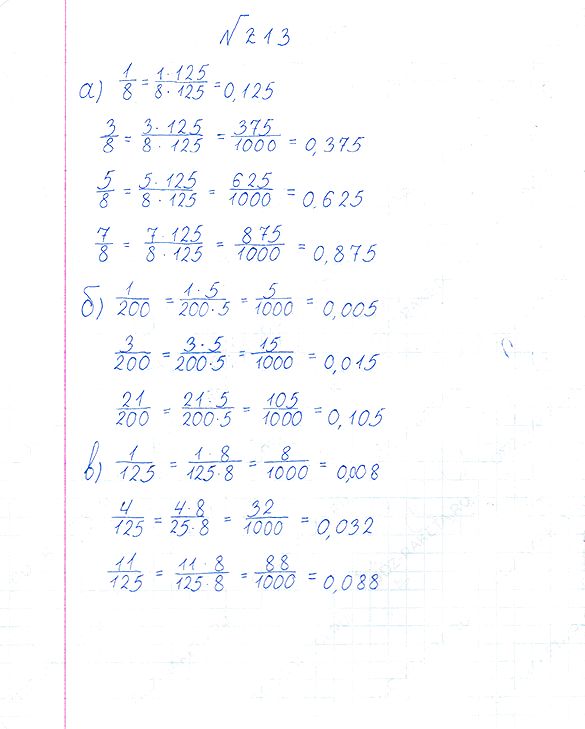 №213
а) 1/8 = 1·125/8·125 = 0,125
3/8 = 3·125/8·125 = 375/1000 = 0,375
5/8 = 5·125/8·125 = 625/1000 = 0,625
7/8 = 7·125/8·125 = 875/1000 = 0,875
б) 1/200 = 1·5/200·5 = 5/1000 = 0,005
3/200 = 3·5/200·5 = 15/1000 = 0,015
21/200 = 21·5/200·5 = 105/1000 = 0,105
в) 1/125 = 1·8/125·8 = 8/1000 = 0,008
4/125 = 4·8/25·8 = 32/1000 = 0,032
11/125 = 11·8/125·8 = 88/1000 = 0,088